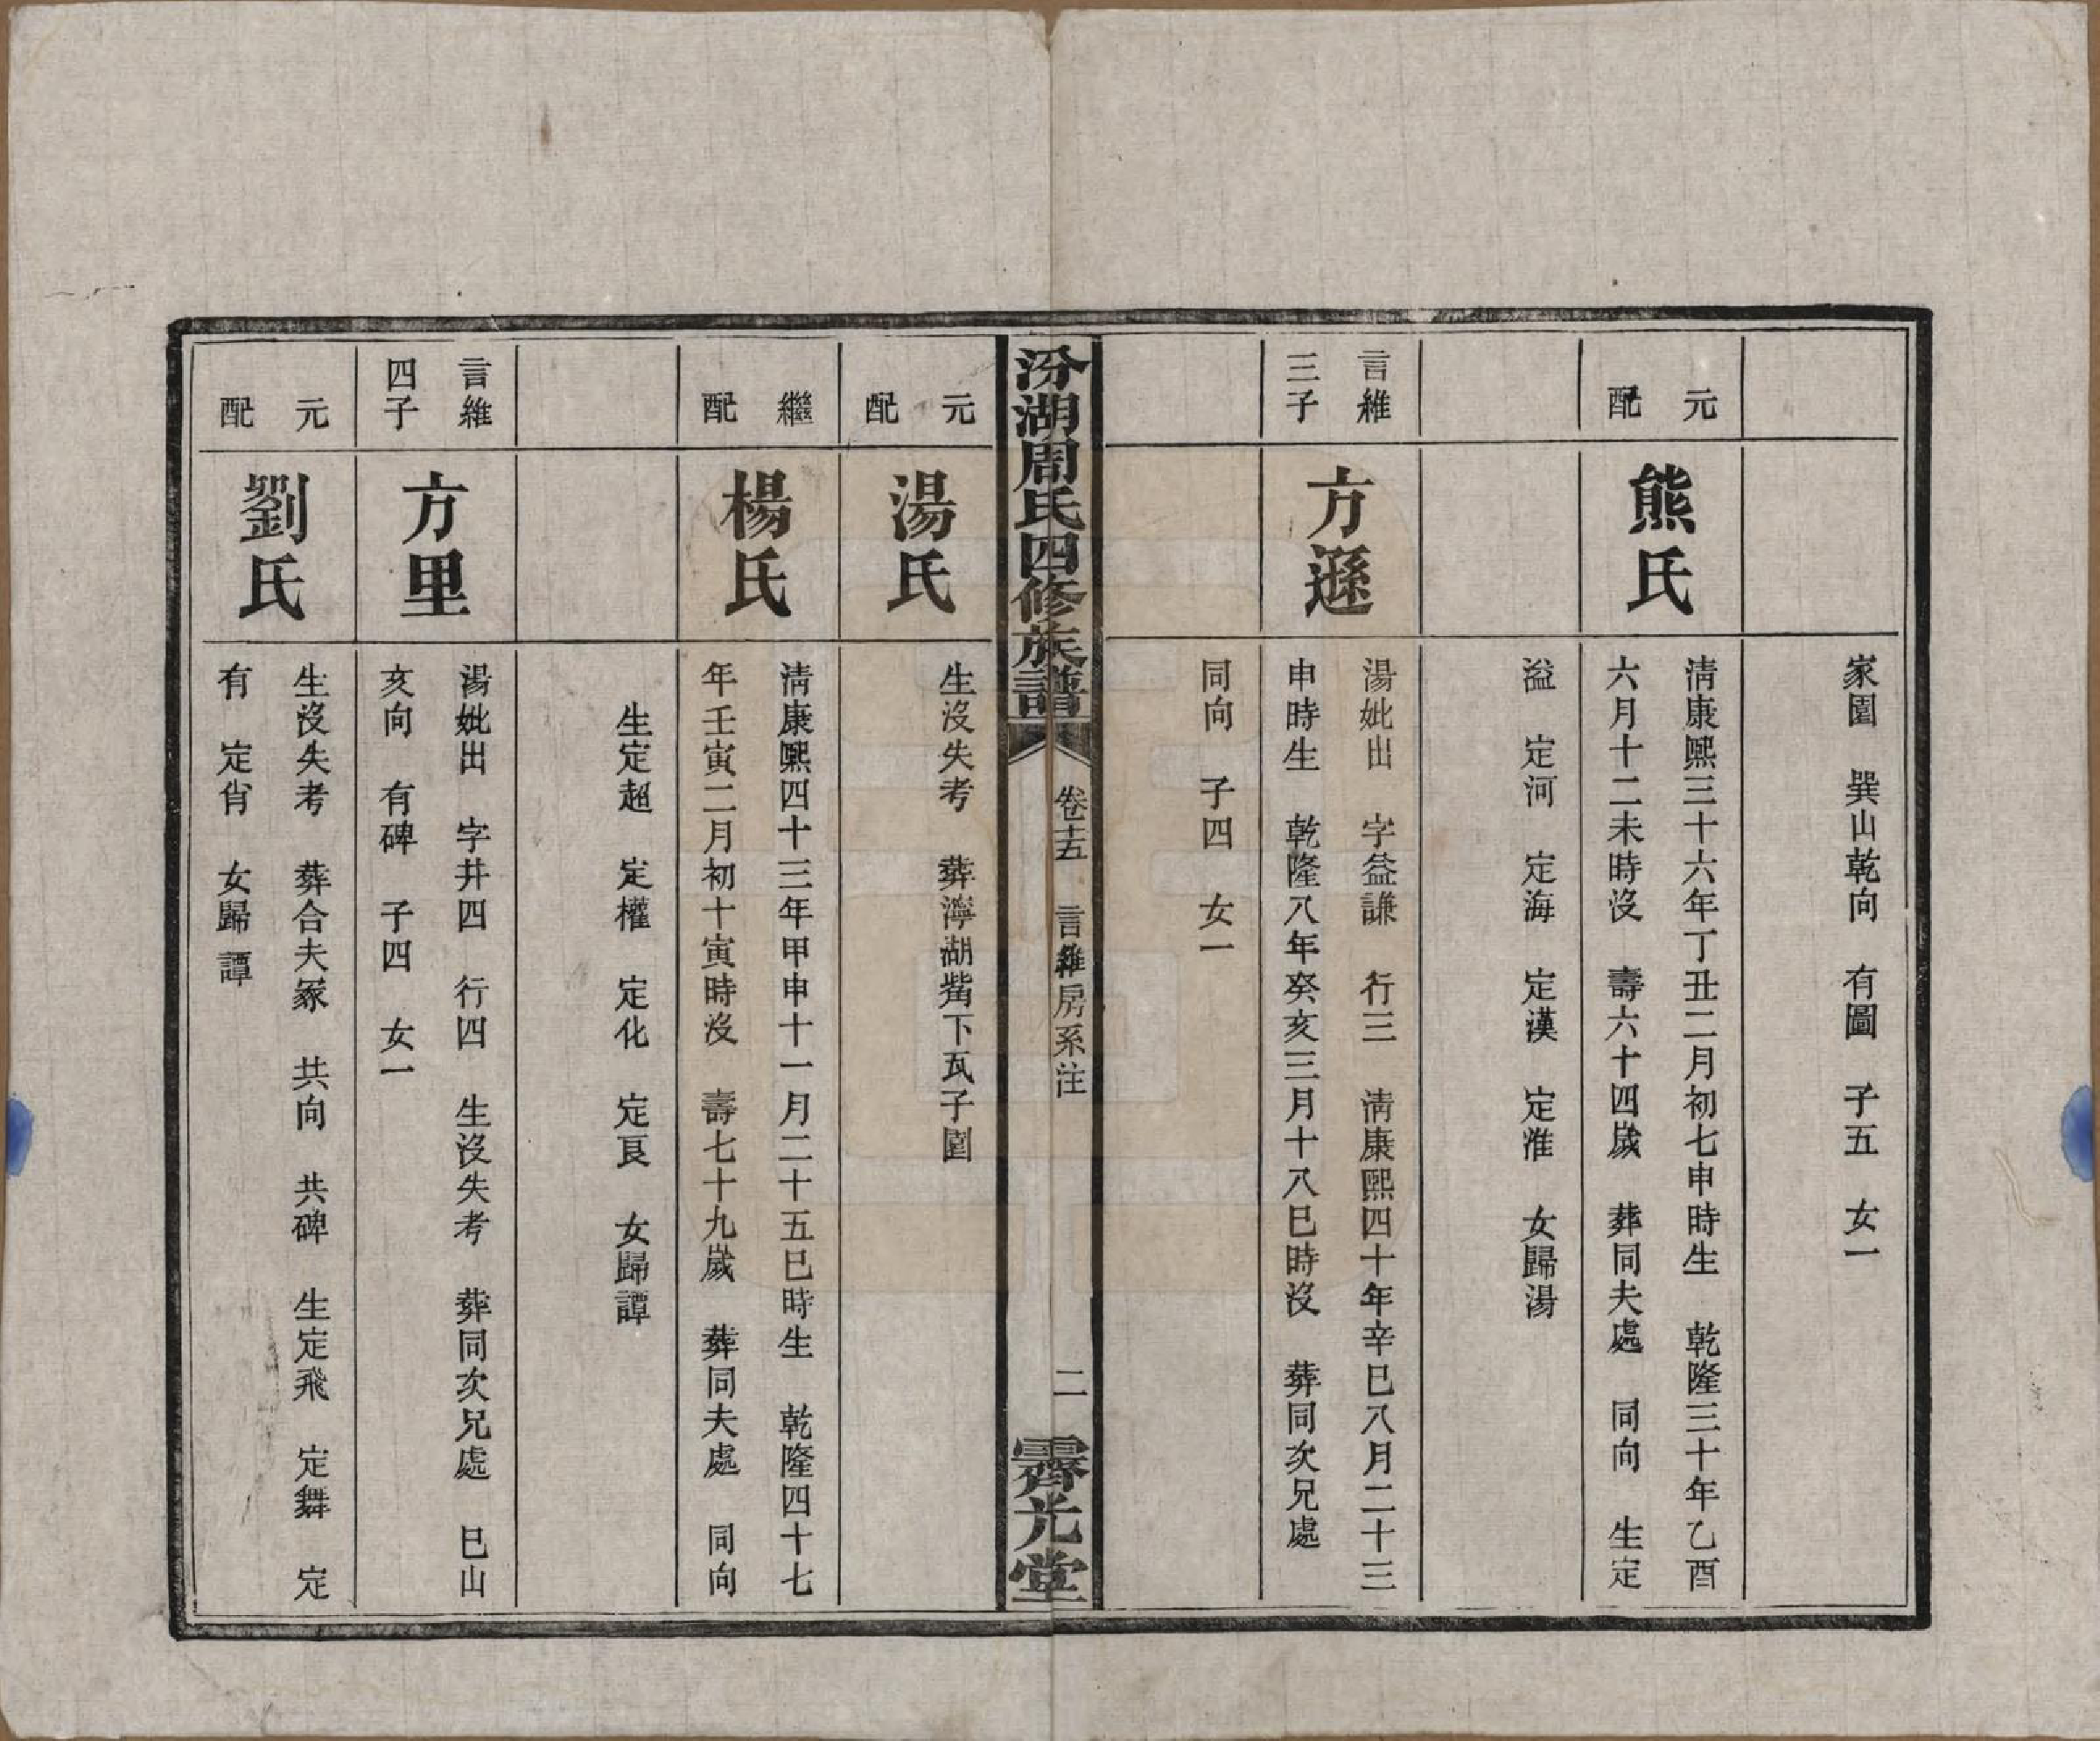 家園　巽山乾向　有圖　子五　女一
元配
熊氏
清康熙三十六年丁丑二月初七申時生　乾隆三十年乙酉
六月十二未時沒　壽六十四歲　葬同夫處　同向　生定
溢　定河　定海　定漢　定淮　女歸湯
言維
三子
方遜
湯妣出　字益謙　行三　清康熙四十年辛巳八月二十三
申時生　乾隆八年癸亥三月十八巳時沒　葬同次兄處
同向　子四　女一
汾湖周氏四修族譜
卷十五　言維房系注
二
霽光堂
元配
湯氏
生沒失考　葬濘湖觜下瓦子園
繼配
楊氏
清康熙四十三年甲申十一月二十五巳時生　乾隆四十七
年壬寅二月初十寅時沒　壽七十九歲　葬同夫處　同向
生定超　定權　定化　定良　女歸譚
言維
四子
方里
湯妣出　字井四　行四　生沒失考　葬同次兄處　巳山
亥向　有碑　子四　女一
元配
劉氏
生沒失考　葬合夫冢　共向　共碑　生定飛　定舞　定
有　定肖　女歸譚